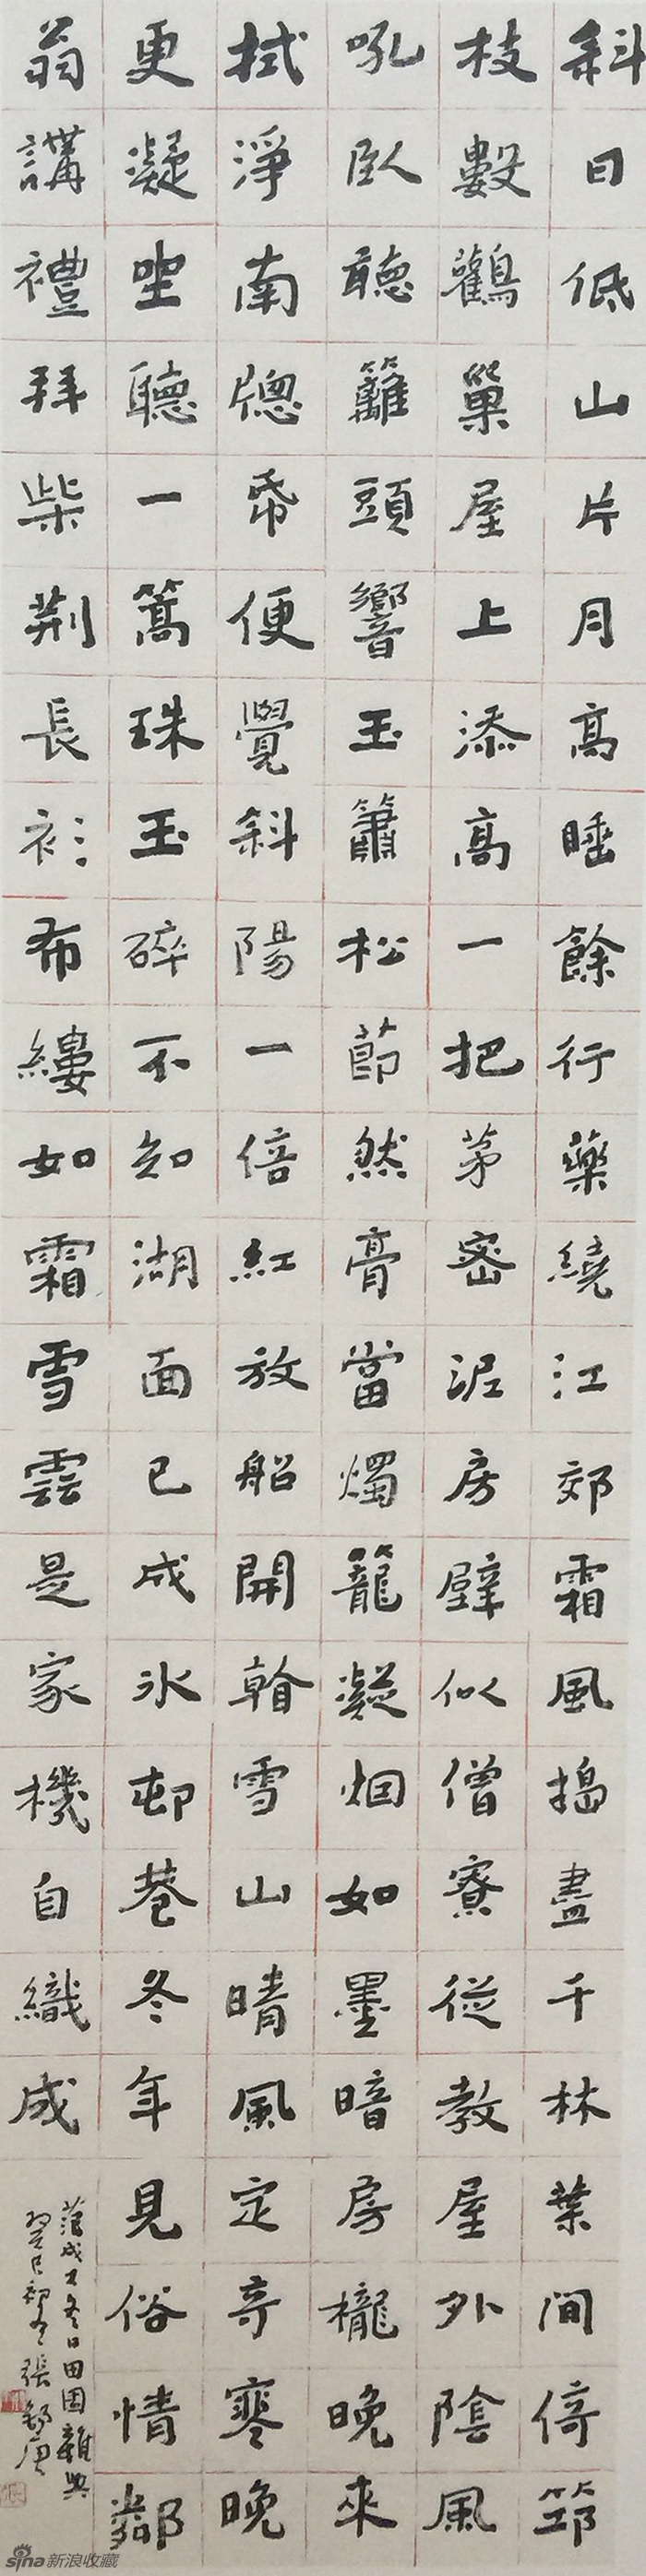 斜日低山片月高睡餘行藥繞江郊霜風搗盡千林葉閒倚筇
枝數鸛巢屋上添高一把茅密泥房壁似僧寮從教屋外陰風
吼臥聽籬頭響玉簫松節然膏當燭籠凝烟如墨暗房櫳晚來
拭淨南窻帋便覺斜陽一倍紅放船開看雪山晴風定奇寒晚
更凝坐聽一篙珠玉碎不知湖面已成冰邨巷冬年見俗情鄰
翁講禮拜柴荆長衫布縷如霜雪雲是家機自織成
范成大冬日田園雜興
癸巳初冬張
sina新浪收藏